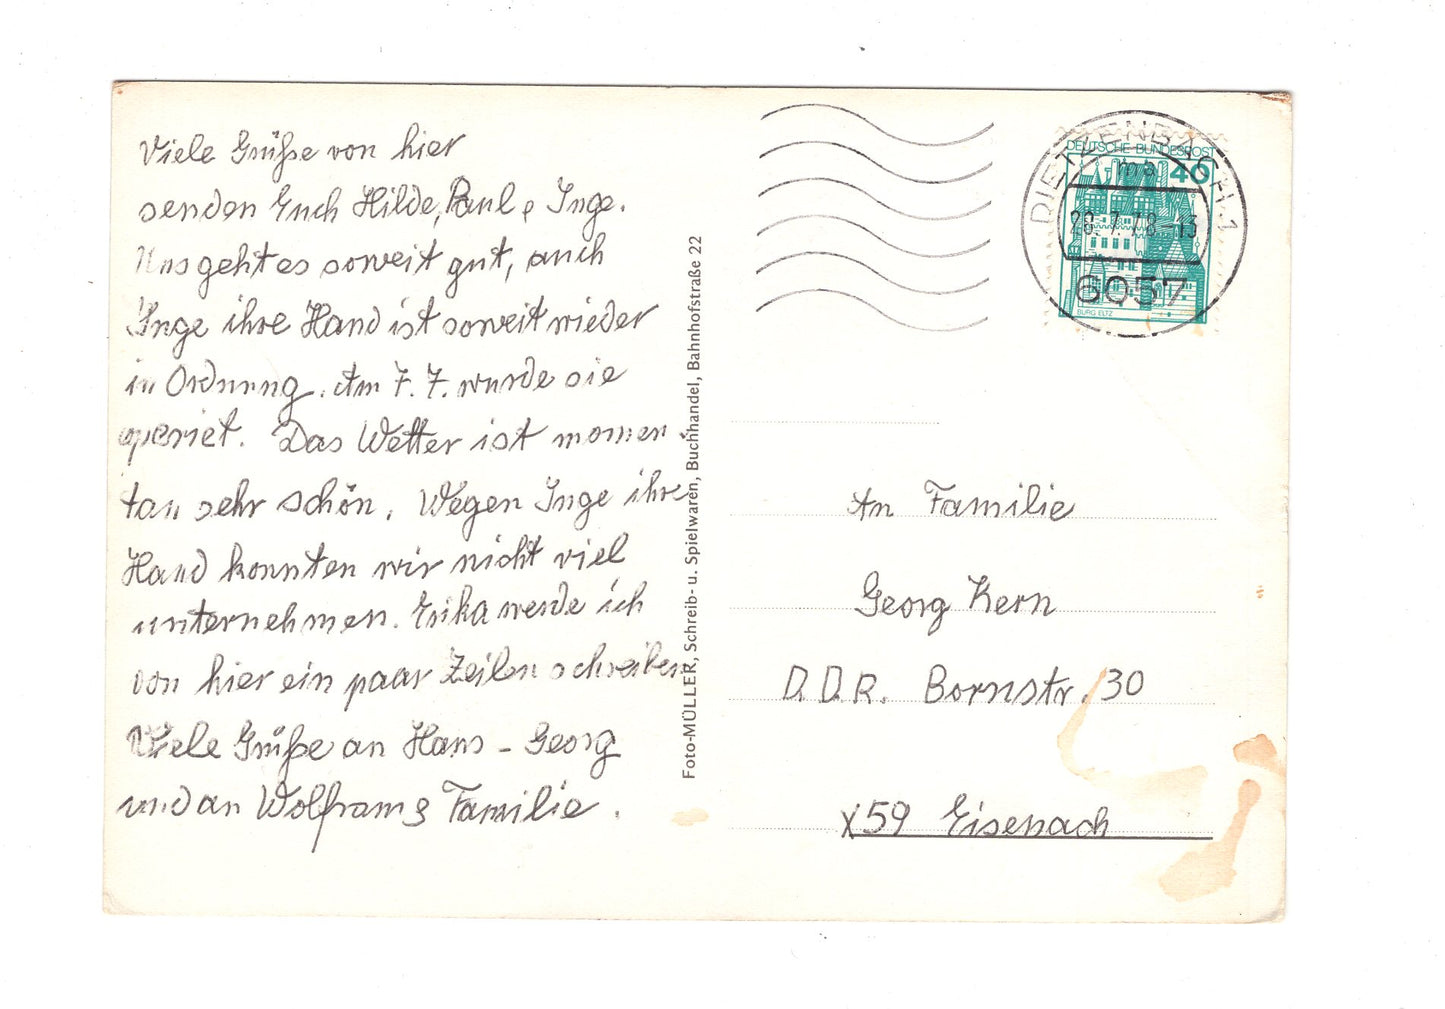 Viele Grüße von hier
senden Euch Hilde, Paul e Inge.
Uns geht es soweit gut, auch
Inge ihre Hand ist soweit wieder
in Ordnung. Am 7.7. wurde sie
operiet. Das Wetter ist momen-
tan sehr schön. Wegen Inge ihre
Hand konnten wir nicht viel
unternehmen. Erika werde ich
von hier ein paar Zeilen schreiben
Viele Grüße an Hans - Georg
und an Wolframs Familie.
Foto-MÜLLER, Schreib- u. Spielwaren, Buchhandel, Bahnhofstraße 22
DEUTSCHE BUNDESPOST
40
BURG ELTZ
DIETZENBACH 1
ma
20.7.78-13
6057
An Familie
Georg Kern
D.D.R. Bornstr. 30
X59 Eisenach